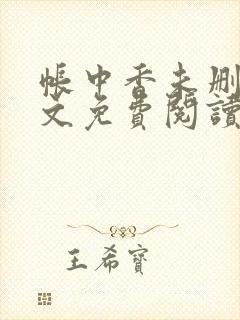 帳中香未删
文免費閱讀
王希寶